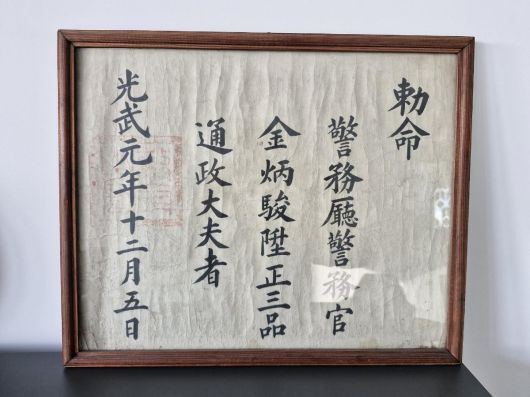 勅命
警務廳警務官
金炳駿陞正三品
通政大夫者
光武元年十二月五日